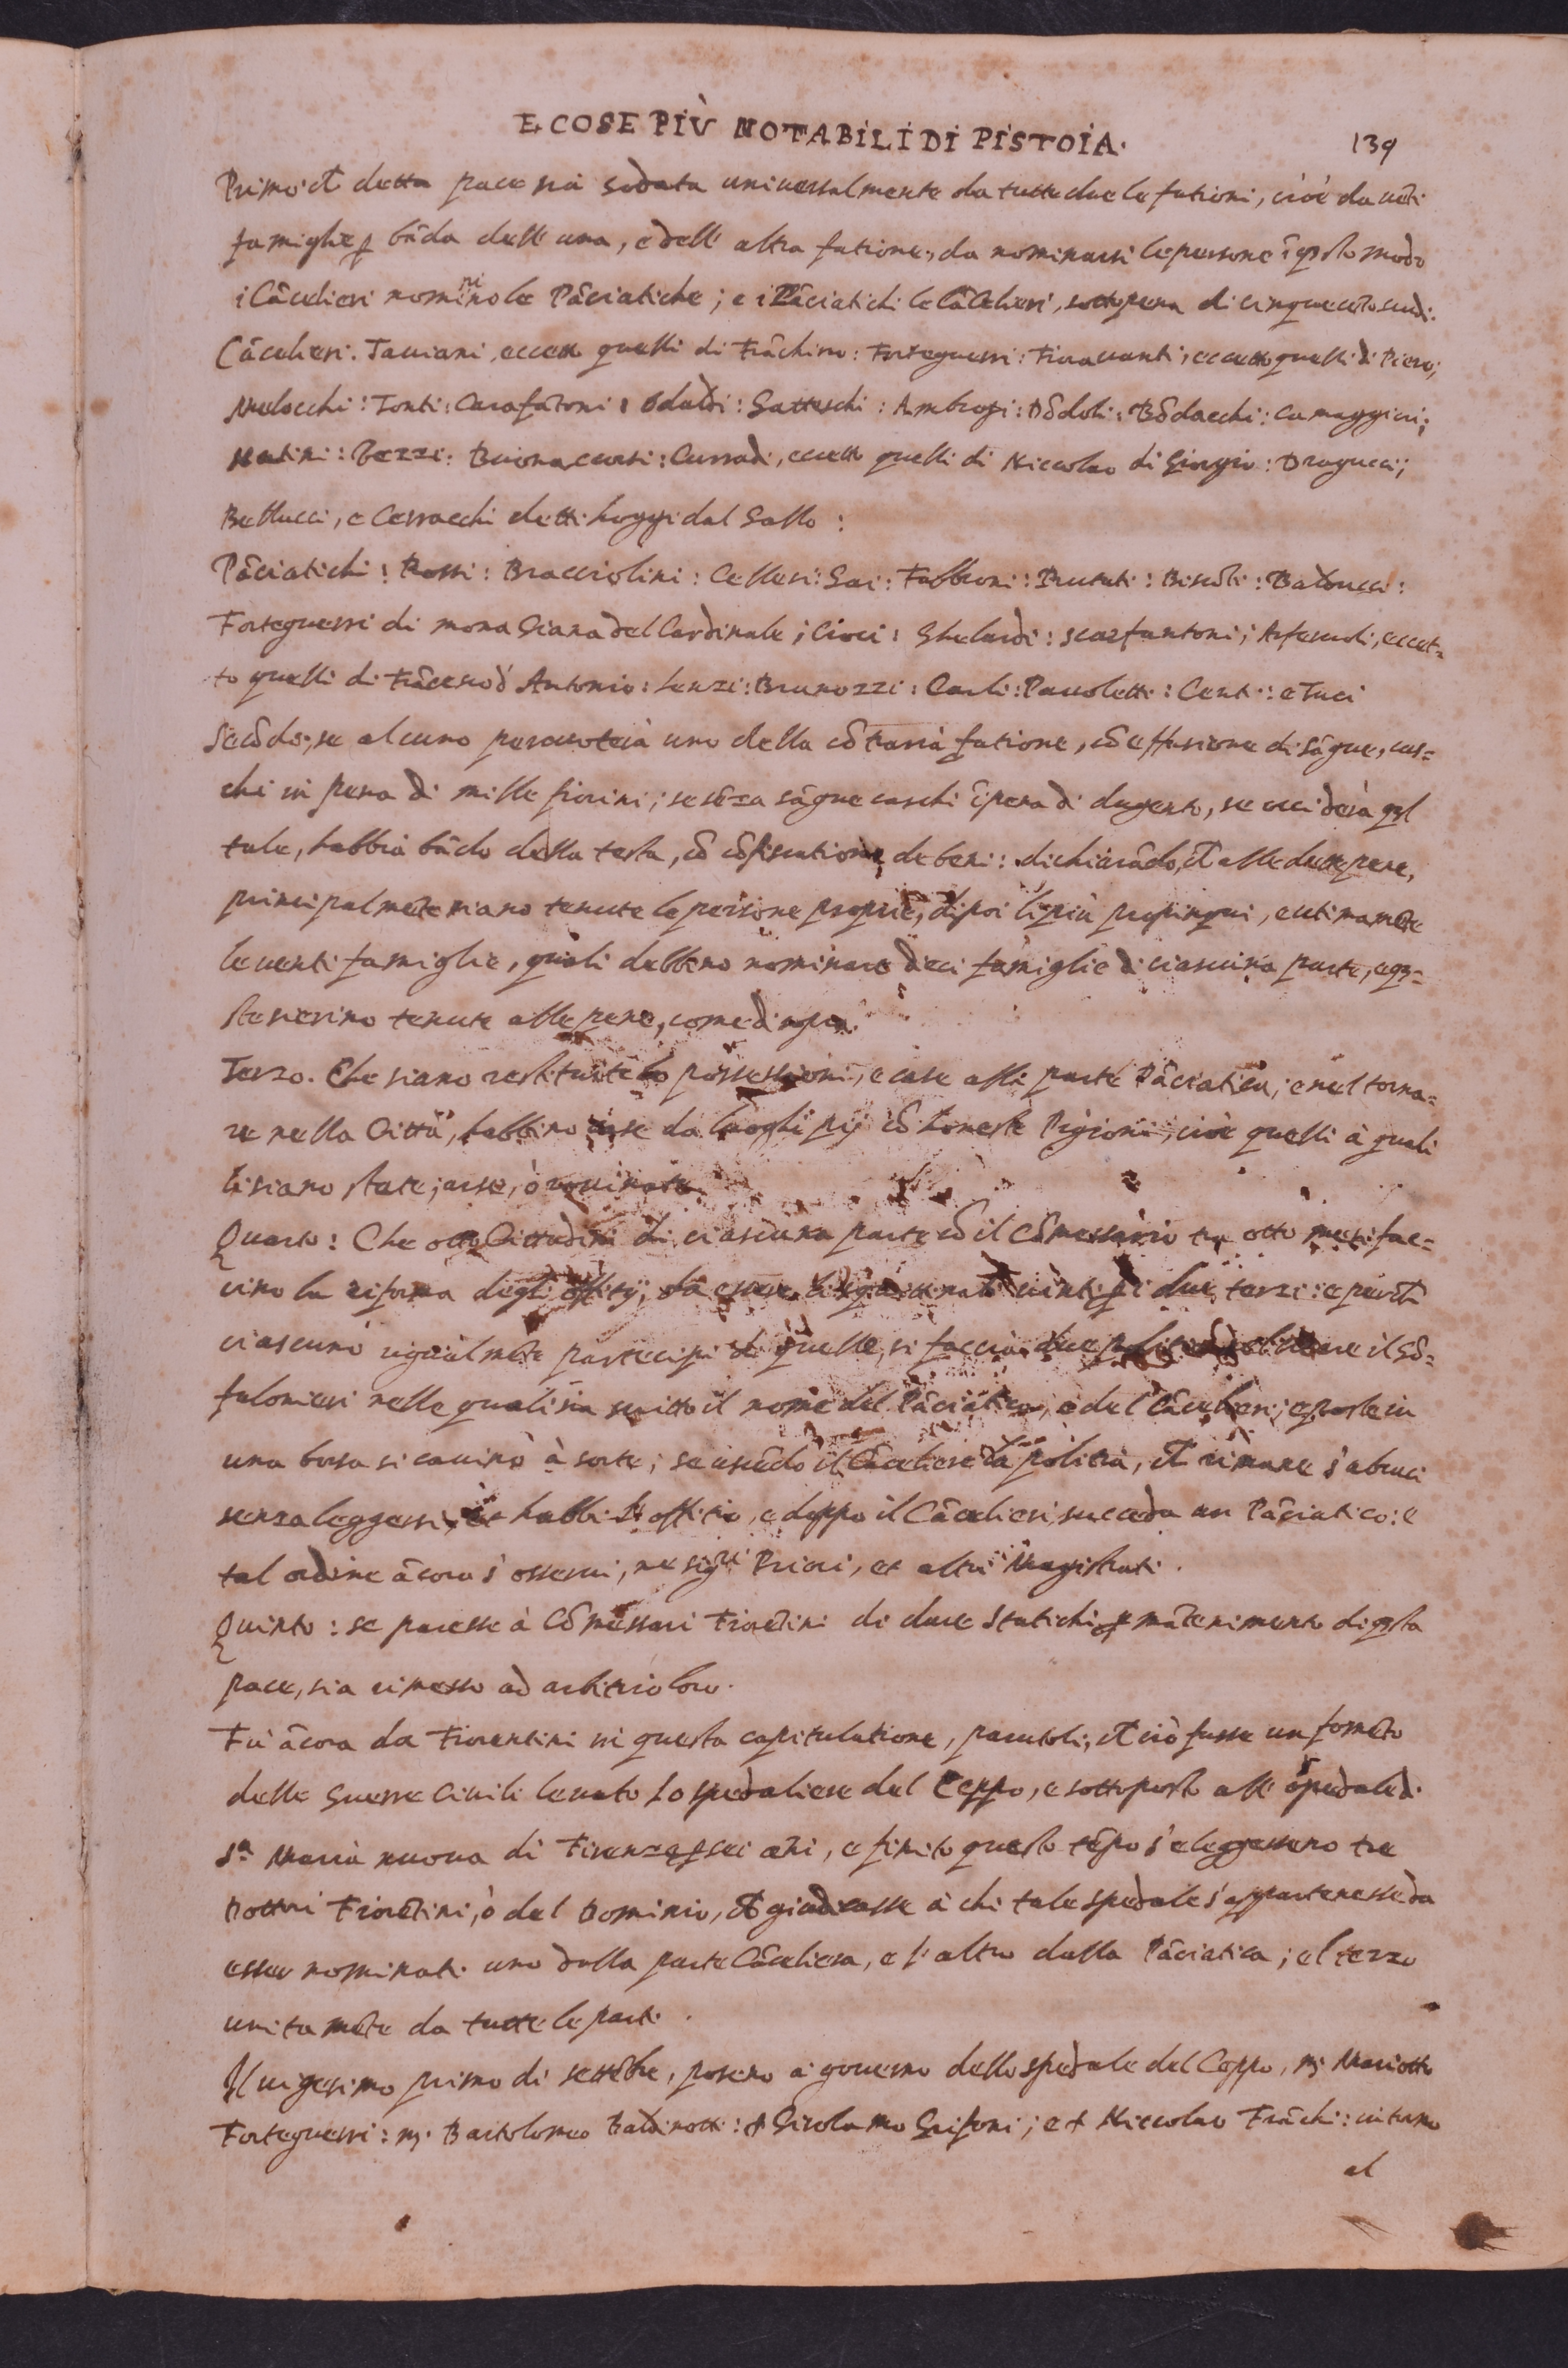 E COSE PIÙ NOTABILI DI PISTOIA. 139
Primo: ch̃ detta pace sia sodata universalmente da tutte due le fationi, cioè da uẽti
famiglie ꝑ bãda dell' una, e dell' altra fatione, da nominarsi le persone ĩ qsto modo
i Cãcelieri nominino le Pãciatiche; e i Pãciatichi le Cãcelieri, sotto pena di cinquecẽto scudi.
Cãcelieri. Tauiani, eccetto quelli di Frãchino: Forteguerri: Fiorauanti, eccetto quelli di Piero;
Melocchi: Tonti: Carafãtoni: Odaldi: Gatteschi: Ambrogi: Dõdoli: Bõdacchi: Ca maggiori;
Matini: Pezzi: Buonacorsi: Curradi, eccetto quelli di Niccolao di Giorgio: Dragucci;
Bellucci, e Cerracchi detti hoggi dal Gallo:
Pãciatichi: Rossi: Bracciolini: Cellesi: Gai: Fabbroni: Brunati: Biscõti: Balducci:
Forteguerri di mona Giana del Cardinale; Cioci: Ghelardi: Scarfantoni; Arferuoli, eccet=
to quelli di Frãcesco d' Antonio: Lenzi: Brunozzi: Carli: Pauoletti: Centi: e Tuci
Secõdo; se alcuno percuoterà uno della cõtraria fatione, cõ effusione di sãgue, cas=
chi in pena di mille fiorini; se sẽza sãgue caschi ĩ pena di dugento, se occiderà qsl
tale, habbia bãdo della testa, cõ cõfiscatione de beni: dichiarãdo, ch̃ alle dette pene,
principalmẽte siano tenute le persone proprie, di poi li più propinqui, e ultimamẽte
le uenti famiglie, quali debbino nominare dieci famiglie di ciascuna parte, e qs=
te sierino tenute alle pene, come di sopra.
Terzo. Che siano restituite le possessioni, e case alla parte Pãciatica; e nel torna=
re nella Città, habbino case da luoghi pij cõ honeste Pigioni, cioè quelli à quali
li siano state; arse, ò rouinate.
Quarto: Che otto Cittadini di ciascuna parte cõ il Cõmessario tra otto mesi fac=
cino la riforma degli offitij, da essere li squittinati uinti ꝑ i due terzi: e perch̃
ciascuno ugualmẽte partecipi di quelle, si faccia due il Gõ=
falonieri nelle quali sia scritto il nome del Pãciatico, e del Cãcelieri; e poste in
una borsa si cauino à sorte; se uscẽdo il Cãceliere la politia, ch̃ rimane s' abruci
senza leggersi, et habbi l' offitio, e doppo il Cãcelieri succeda un Pãciatico: e
tal ordine ãcora s' osserui, ne sigri Priori, et altri Magistrati.
Quinto: se paresse à Cõmessari Fiorẽtini di dare Statichi ꝑ mãtenimento di qsta
pace, sia rimesso ad arbitrio loro.
Fù ãcora da Fiorentini in questa capitulatione, parutoli, ch̃ ciò fusse un fomẽto
delle Guerre Ciuili leuato lo spedaliere del Ceppo, e sottoposto all' ospedale di
Sta Maria nuoua di Firenze ꝑ sei ãni, e finito questo tẽpo s' eleggessero tre
Dottori Fiorẽtini, ò del Dominio, ch̃ giudicasse à chi tale spedale s' appartenesse da
esser nominati uno dalla parte Cãceliera, e l' altro dalla Pãciatica; el terzo
unitamẽte da tutte le parti.
Il uigesimo primo di settẽbre, posero a gouerno dello spedale del Ceppo, m: Mariotto
Forteguerri: m: Bartolomeo Baldinotti: & Girolamo Grifoni; e & Niccolao Frãchi: intorno
al